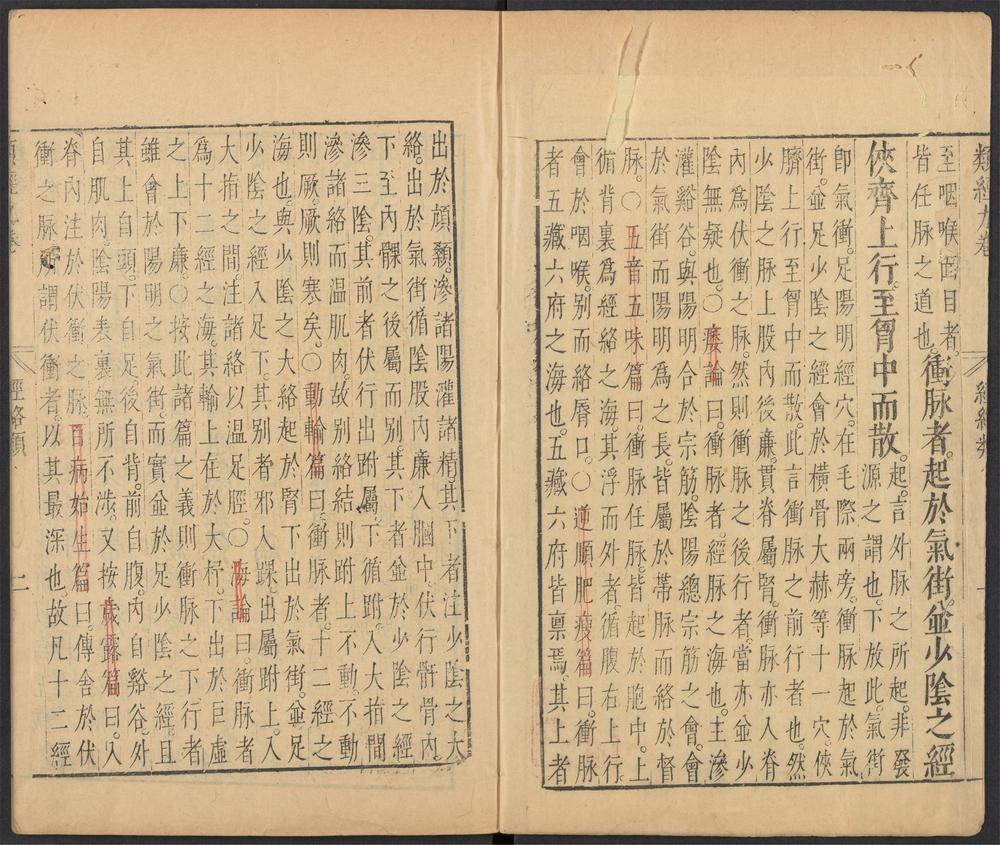 類經九卷
經絡類
至咽喉面目者
皆任脉之道也。衝脉者。起於氣街。並少陰之經
俠齊上行。至胷中而散。起。言外脉之所起。非發
源之謂也。下放此。氣街
卽氣衝。足陽明經穴。在毛際兩旁。衝脉起於氣
街。並足少陰之經。會於橫骨大赫等十一穴。俠
臍上行。至胷中而散。此言衝脉之前行者也。然
少陰之脉上股內後廉。貫脊屬腎。衝脉亦入脊
內爲伏衝之脉。然則衝脉之後行者。當亦並少
陰無疑也。○痿論曰。衝脉者。經脉之海也。主滲
灌谿谷。與陽明合於宗筋。陰陽總宗筋之會。會
於氣街。而陽明爲之長。皆屬於帶脉。而絡於督
脉。○五音五味篇曰。衝脉任脉。皆起於胞中。上
循背裏。爲經絡之海。其浮而外者。循腹右上行。
會於咽喉。別而絡脣口。○逆順肥瘦篇曰。衝脉
者五藏六府之海也。五藏六府皆禀焉。其上者
出於頏顙。滲諸陽。灌諸精。其下者。注少陰之大
絡。出於氣街。循陰股內廉。入膕中。伏行骭骨內。
下至內髁之後屬而別。其下者。並於少陰之經
滲三陰。其前者。伏行出跗屬。下循跗。入大指間
滲諸絡而温肌肉。故別絡結則跗上不動。不動
則厥。厥則寒矣。○動輸篇曰。衝脉者。十二經之
海也。與少陰之大絡起於腎下。出於氣街。並足
少陰之經。入足下。其別者。邪入踝。出屬跗上。入
大指之間。注諸絡以温足脛。○海論曰。衝脉者
爲十二經之海。其輸上在於大杼。下出於巨虛
之上下廉。○按此諸篇之義。則衝脉之下行者
雖會於陽明之氣街。而實並於足少陰之經。且
其上自頭。下自足。後自背。前自腹。內自谿谷。外
自肌肉。陰陽表裏無所不涉。又按歲露篇曰。入
脊內。注於伏衝之脉。百病始生篇曰。傳舍於伏
衝之脉。所謂伏衝者。以其最深也。故凡十二經
經絡類
二